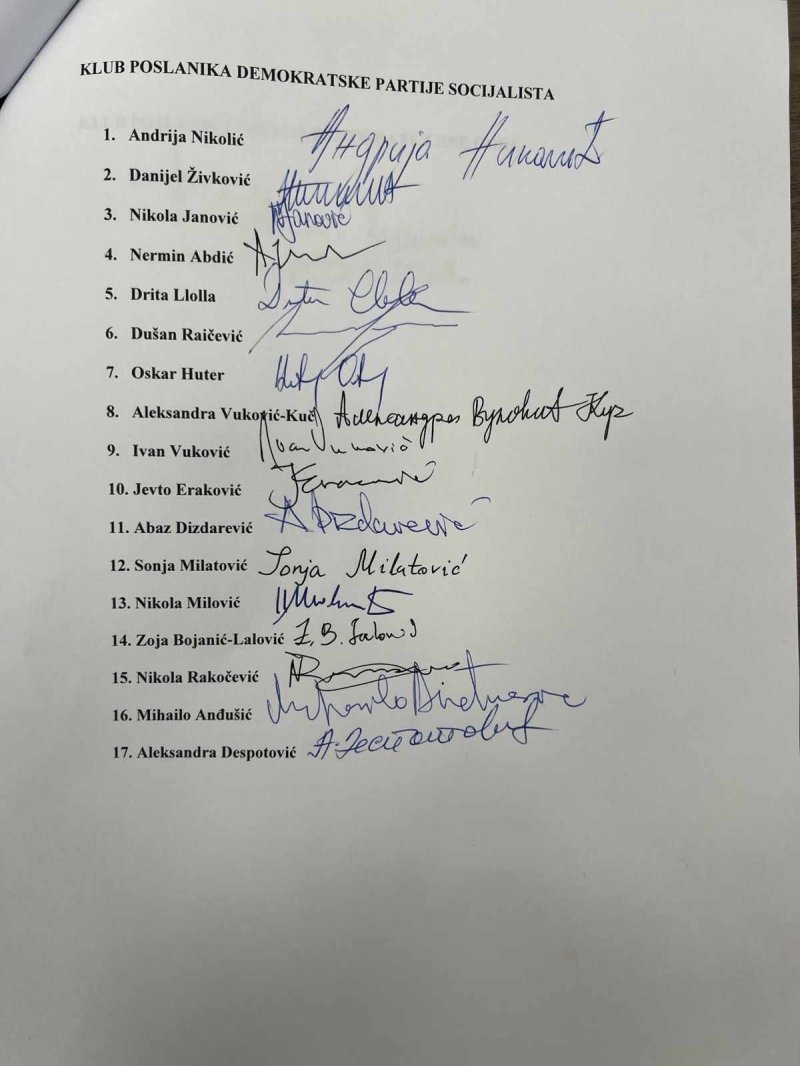 KLUB POSLANIKA DEMOKRATSKE PARTIJE SOCIJALISTA
1. Andrija Nikolić Андрија Николић
2. Danijel Živković
3. Nikola Janović NJanović
4. Nermin Abdić
5. Drita Llolla Drita Llolla
6. Dušan Raičević
7. Oskar Huter
8. Aleksandra Vuković-Kuč Александра Вуковић Куч
9. Ivan Vuković Ivan Vuković
10. Jevto Eraković
11. Abaz Dizdarević A Dizdarević
12. Sonja Milatović Sonja Milatović
13. Nikola Milović
14. Zoja Bojanić-Lalović Z. B. Lalović
15. Nikola Rakočević
16. Mihailo Anđušić
17. Aleksandra Despotović А. Деспотовић